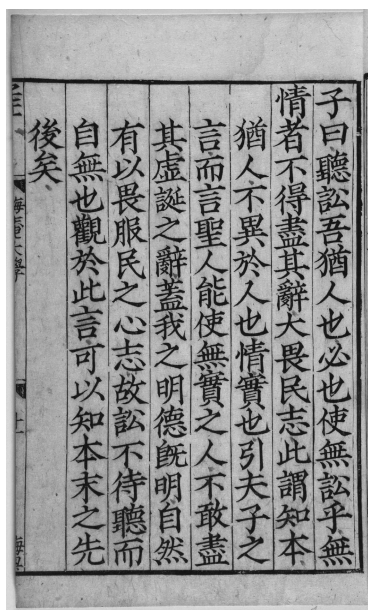 子曰聽訟吾猶人也必也使無訟乎無
情者不得盡其辭大畏民志此謂知本
猶人不異於人也情實也引夫子之
言而言聖人能使無實之人不敢盡
其虛誕之辭蓋我之明德旣明自然
有以畏服民之心志故訟不待聽而
自無也觀於此言可以知本末之先
後矣